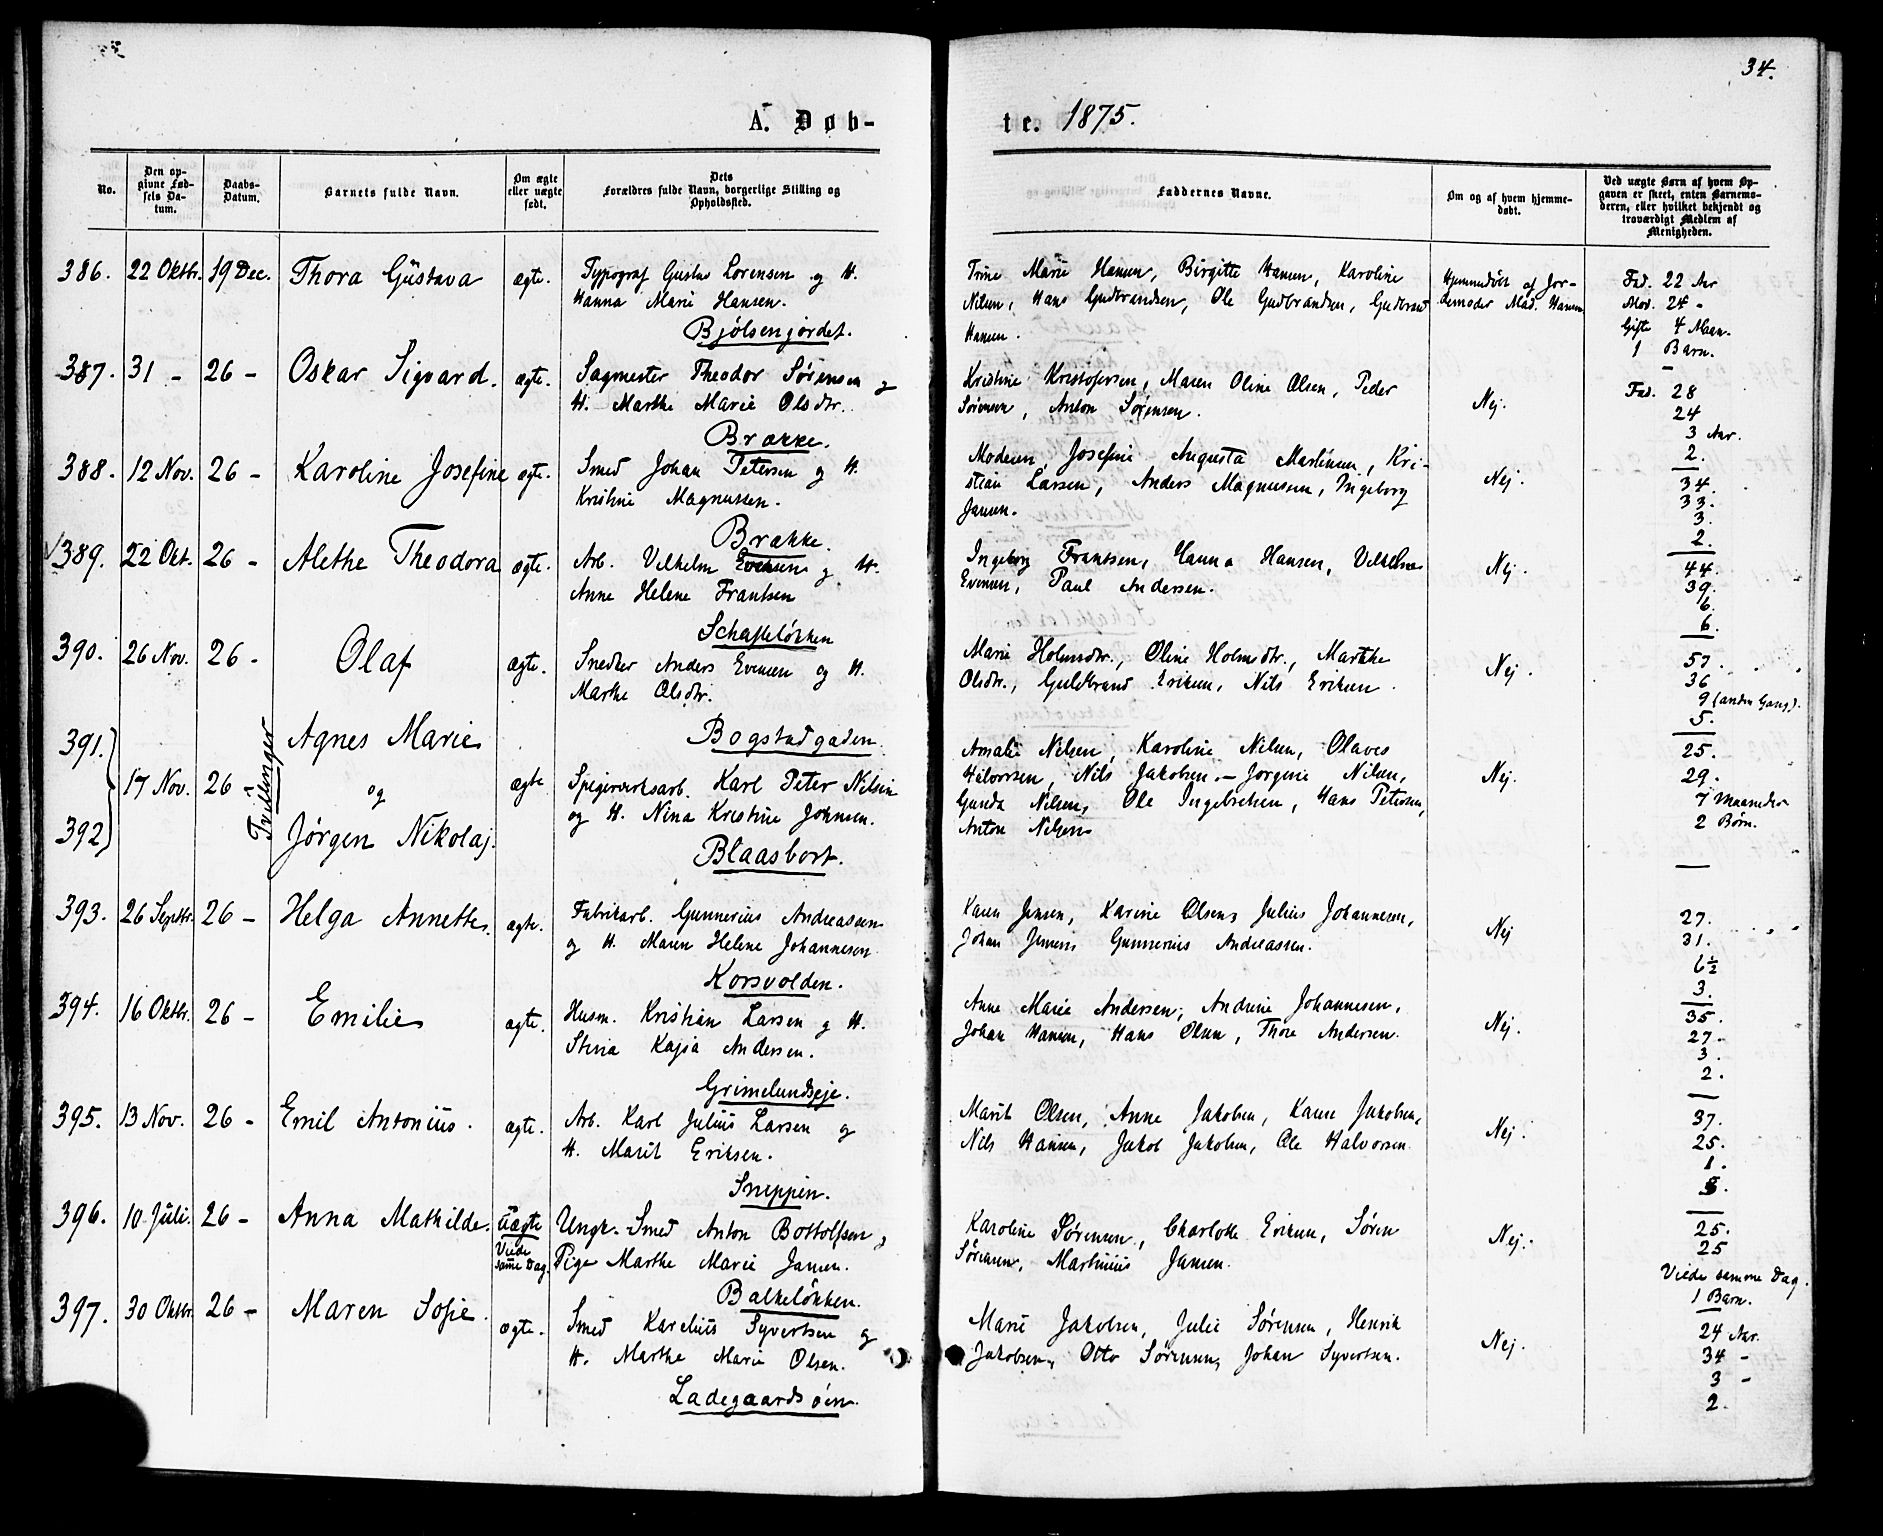 34.
A. Døb-
te. 1875.
No.
Den op-
givne Fød-
sels Da-
tum.
Daabs-
Datum.
Barnets fulde Navn.
Om ægte
eller uægte
født.
Dets
Forældres fulde Navn, borgerlige Stilling og
Opholdssted.
Faddernes Navne.
Om og af hvem hjemme-
døbt.
Ved uægte Børn af hvem Op-
gaven er skeet, enten Barnemo-
deren, eller hvilket bekjendt og
troværdigt Medlem af
Menigheden.
386. 22 Oktbr. 19 Dec. Thora Gustava ægte. Typograf Gustav Lorensen og H.
Hanna Marie Hansen.
Bjølsenjordet.
Trine Marie Hansen, Birgitte Hansen, Karoline
Nilsen, Hans Gudbrandsen, Ole Gudbrandsen, Gudbrand
Hansen.
Hjemmedøbt af Jor-
demoder Mad. Hansen
Fad. 22 Aar
Mod. 24 -
Gifte 4 Maan.
1 Barn.
387. 31 - 26 - Oskar Sigvard. ægte. Sagmester Theodor Sørensen og
H. Marthe Marie Olsdtr.
Brække.
Kristine Kristofersen, Maren Oline Olsen, Peder
Sørensen, Anton Sørensen.
Nej.
Fad. 28
24
3 Aar.
2.
388. 12 Nov. 26 - Karoline Josefine ægte. Smed Johan Petersen og H.
Kristine Magnussen.
Brække.
Moderen, Josefine Augusta Martinsen, Kri-
stian Larsen, Anders Magnussen, Ingeborg
Jansen.
Nej.
34.
33.
3.
2.
389. 22 Okt. 26 - Alethe Theodora ægte. Arb. Vilhelm Evensen og H.
Anne Helene Frantsen
Schafteløkken
Ingeborg Frantsen, Hanna Hansen, Vilhelm
Evensen, Paul Andersen.
Nej.
44.
39.
6.
6.
390. 26 Nov. 26 - Olaf ægte. Snedker Anders Evensen og H.
Marthe Olsdtr.
Bogstadgaden.
Marie Holmsdtr., Oline Holmsdtr., Marthe
Olsdtr., Guldbrand Eriksen, Nils Eriksen.
Nej.
57.
36
9 (anden Gang).
5.
391.
392
17 Nov. 26 - Tvillinger
Agnes Marie
og
Jørgen Nikolaj.
ægte Spigerverksarb. Karl Peter Nilsen
og H. Nina Kristine Johnsen.
Blaasbort.
Amalie Nilsen, Karoline Nilsen, Olaves
Halvorsen, Nils Jakobsen. - Jorgine Nilsen,
Gunda Nilsen, Ole Ingebretsen, Hans Petersen,
Anton Nilsen
Nej.
25.
29.
7 Maaneder
2 Børn.
393. 26 Septbr. 26 - Helga Annette. ægte. Fabrikarb. Gunnerius Andreassen
og H. Maren Helene Johannesen
Korsvolden.
Karen Jensen, Karine Olsen, Julius Johannesen,
Johan Jensen, Gunnerius Andreassen.
Nej
27.
31.
6½
3.
394. 16 Oktbr. 26 - Emilie ægte. Husm. Kristian Larsen og H.
Stina Kajsa Andersen.
Grimelundseje.
Anne Marie Andersen, Andrine Johannesen,
Johan Hansen, Hans Olsen, Thore Andersen.
Nej.
35.
27-
3.
2.
395. 13 Nov. 26 - Emil Antonius. ægte. Arb. Karl Julius Larsen og
H. Marit Eriksen.
Sneppen.
Marit Olsen, Anne Jakobsen, Karen Jakobsen,
Nils Hansen, Jakob Jakobsen, Ole Halvorsen.
Nej.
37.
25.
1.
396. 10 Juli. 26 - Anna Mathilde. Uægte
Viede
samme Dag.
Ungk. Smed Anton Bottolfsen og
Pige Marthe Marie Jansen.
Balkeløkken.
Karoline Sørensen, Charlotte Eriksen, Søren
Sørensen, Martinius Jansen.
Nej.
25.
25
Viede samme Dag.
1 Barn.
397. 30 Oktbr. 26 - Maren Sofie. ægte. Smed Karelius Syvertsen og
H. Marthe Marie Olsen.
Ladegaardsøen.
Marie Jakobsen, Julie Sørensen, Henrik
Jakobsen, Otto Sørensen, Johan Syvertsen.
Nej.
24 Aar.
34 -
3 -
2.